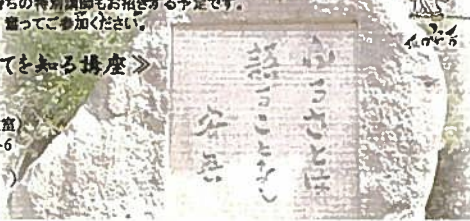 ちの特別講師もお招きする予定です。
奮ってご参加ください。
てを知る講座≫
室)
-6
)
ふるさとは
語ることなし
安吾